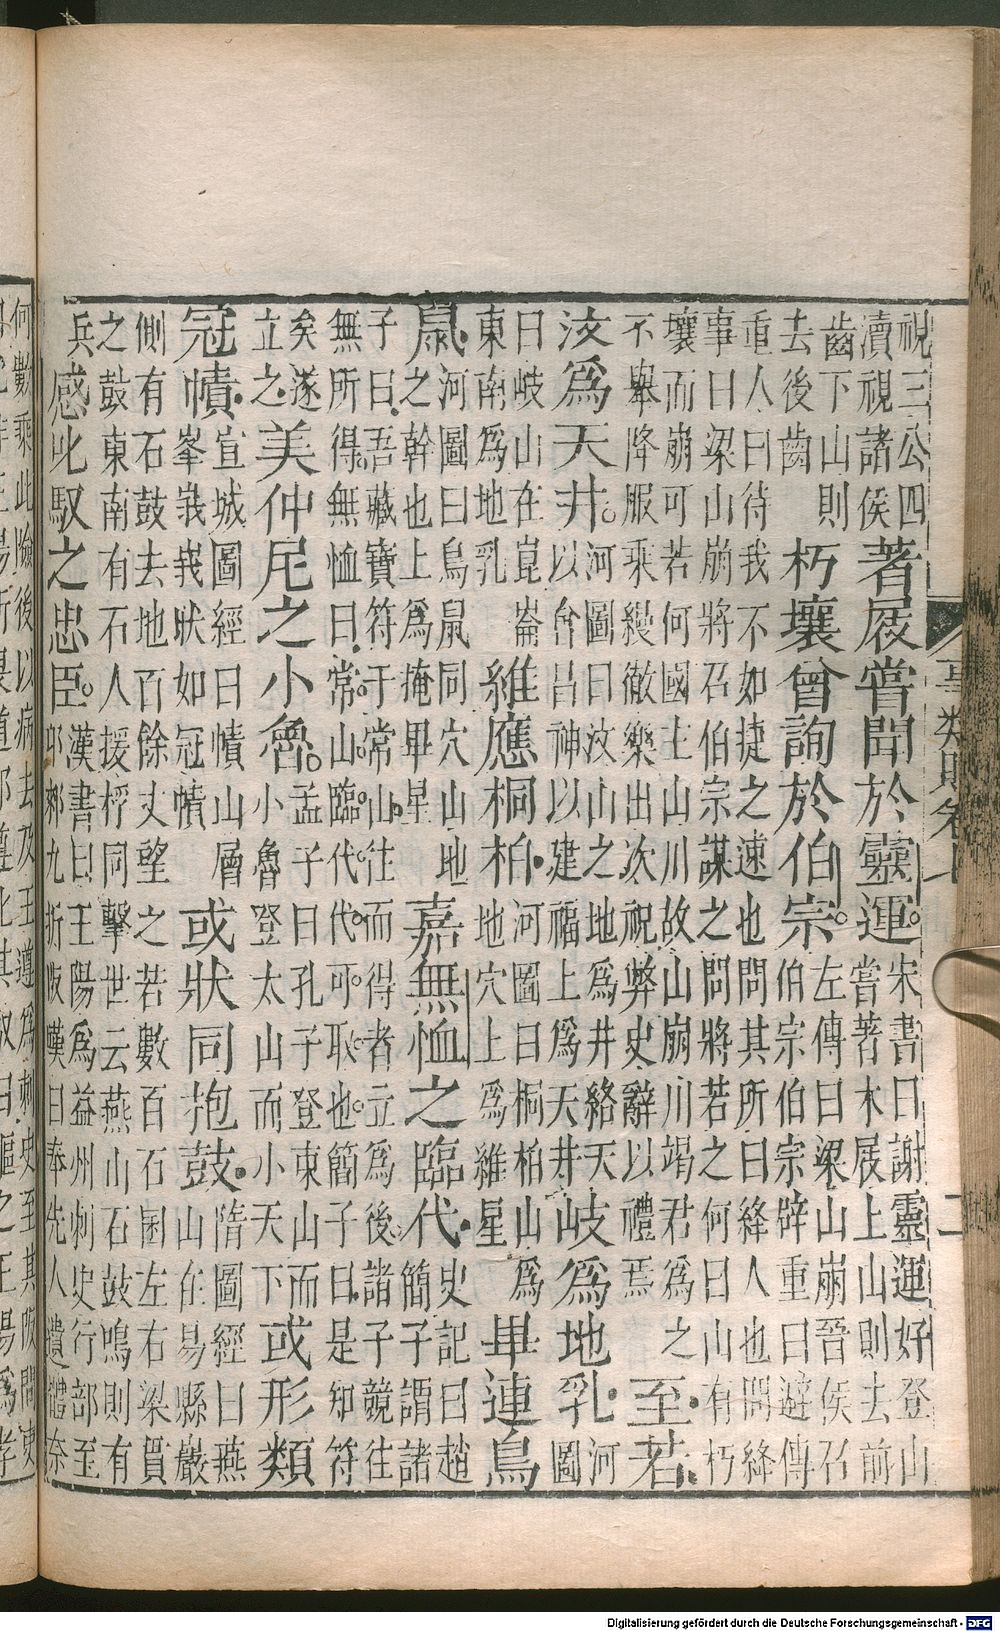 視三公四
瀆視諸侯
著屐嘗聞於靈運。
宋書曰謝靈運好登山
嘗著木屐上山則去前
齒下山則
去後齒
朽壤曾詢於伯宗。
左傳曰梁山崩晉侯召
伯宗伯宗辟重曰避傳
重人曰待我不如捷之速也問其所曰絳人也問絳
事曰梁山崩將召伯宗謀之問將若之何曰山有朽
壤而崩可若何國主山川故山崩川竭君為之
不舉降服乘縵徹樂出次祝幣史辭以禮焉
至若
汶為天井。
河圖曰汶山之地為井絡天
以會昌神以建福上為天井
岐為地乳
河
圖
曰岐山在崑崙
東南為地乳
維應桐柏
河圖曰桐柏山為
地穴上為維星
畢連鳥
鼠
河圖曰鳥鼠同穴山地
之幹也上為掩畢星
嘉無恤之臨代
史記曰趙
簡子謂諸
子曰吾藏寶符于常山往而得者立為後諸子競往
無所得無恤曰常山臨代代可取也簡子曰是知符
矣遂
立之
美仲尼之小魯。
孟子曰孔子登東山而
小魯登太山而小天下
或形類
冠幘
宣城圖經曰幘山層
峯峩峩狀如冠幘
或狀同抱鼓
隋圖經曰燕
山在易縣巖
側有石鼓去地百餘丈望之若數百石囷左右梁貫
之鼓東南有石人援桴同擊世云燕山石鼓鳴則有
兵
感此馭之忠臣。
漢書曰王陽為益州刺史行部至
邛郲九折阪嘆曰奉先人遺體奈
何數乘此險後以病去及王遵為刺史至其阪問吏
事類賦卷七
二
Digitalisierung gefördert durch die Deutsche Forschungsgemeinschaft - DFG